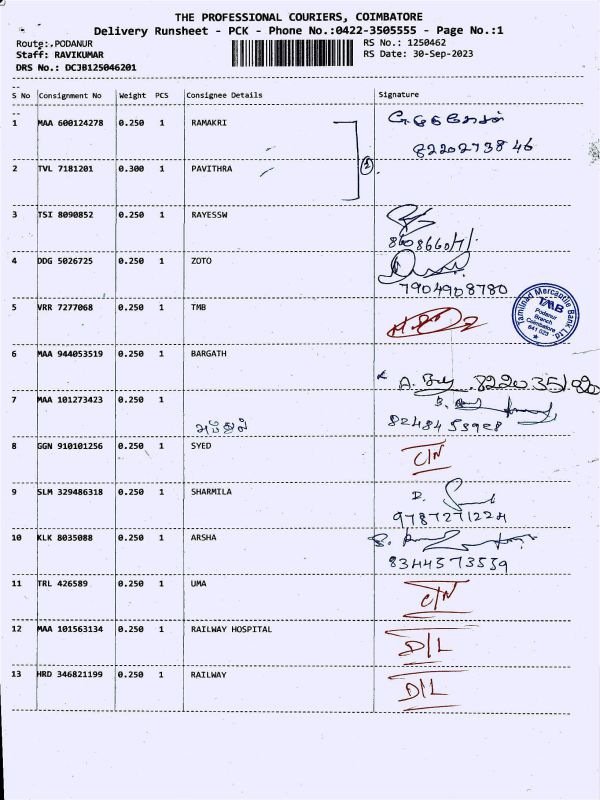 THE PROFESSIONAL COURIERS, COIMBATORE
Delivery Runsheet - PCK - Phone No.:0422-3505555 - Page No.:1
Route:.PODANUR RS No.: 1250462
Staff: RAVIKUMAR RS Date: 30-Sep-2023
DRS No.: DCJB125046201
S No Consignment No Weight PCS Consignee Details Signature
1 MAA 600124278 0.250 1 RAMAKRI
8220273846
2 TVL 7181201 0.300 1 PAVITHRA 2
3 TSI 8090852 0.250 1 RAYESSW
4 DDG 5026725 0.250 1 ZOTO
7904908780
5 VRR 7277068 0.250 1 TMB
Tamilnad Mercantile Bank Ltd.
TMB
Podanur
Branch
Coimbatore
641 023
6 MAA 944053519 0.250 1 BARGATH
7 MAA 101273423 0.250 1
8248453928
8 GGN 910101256 0.250 1 SYED C/N
9 SLM 329486318 0.250 1 SHARMILA
9787271224
10 KLK 8035088 0.250 1 ARSHA
8344573559
11 TRL 426589 0.250 1 UMA C/N
12 MAA 101563134 0.250 1 RAILWAY HOSPITAL D/L
13 HRD 346821199 0.250 1 RAILWAY D/L